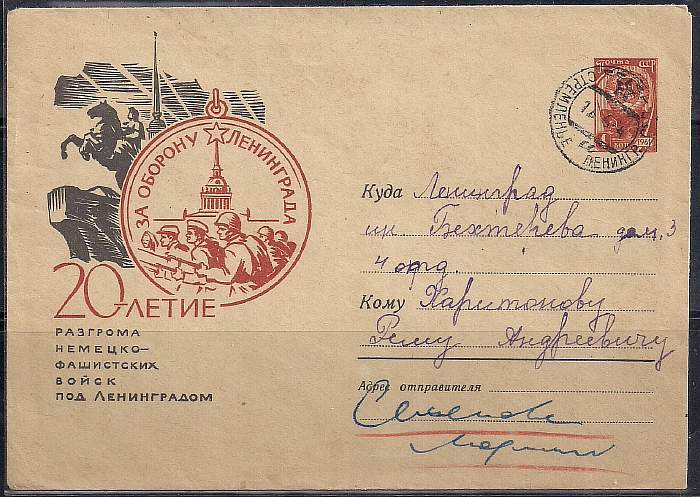 ЗА ОБОРОНУ ЛЕНИНГРАДА
20-ЛЕТИЕ
РАЗГРОМА
НЕМЕЦКО-
ФАШИСТСКИХ
ВОЙСК
ПОД ЛЕНИНГРАДОМ
ПОЧТА СССР
1961
Куда Ленинград
Бехтерева дом. 3
4 отд.
Кому Харитонову
Рему Андреевичу
Адрес отправителя